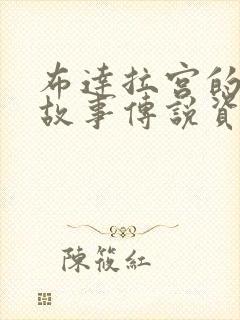 布達拉宮的
故事傳說資
陳筱紅